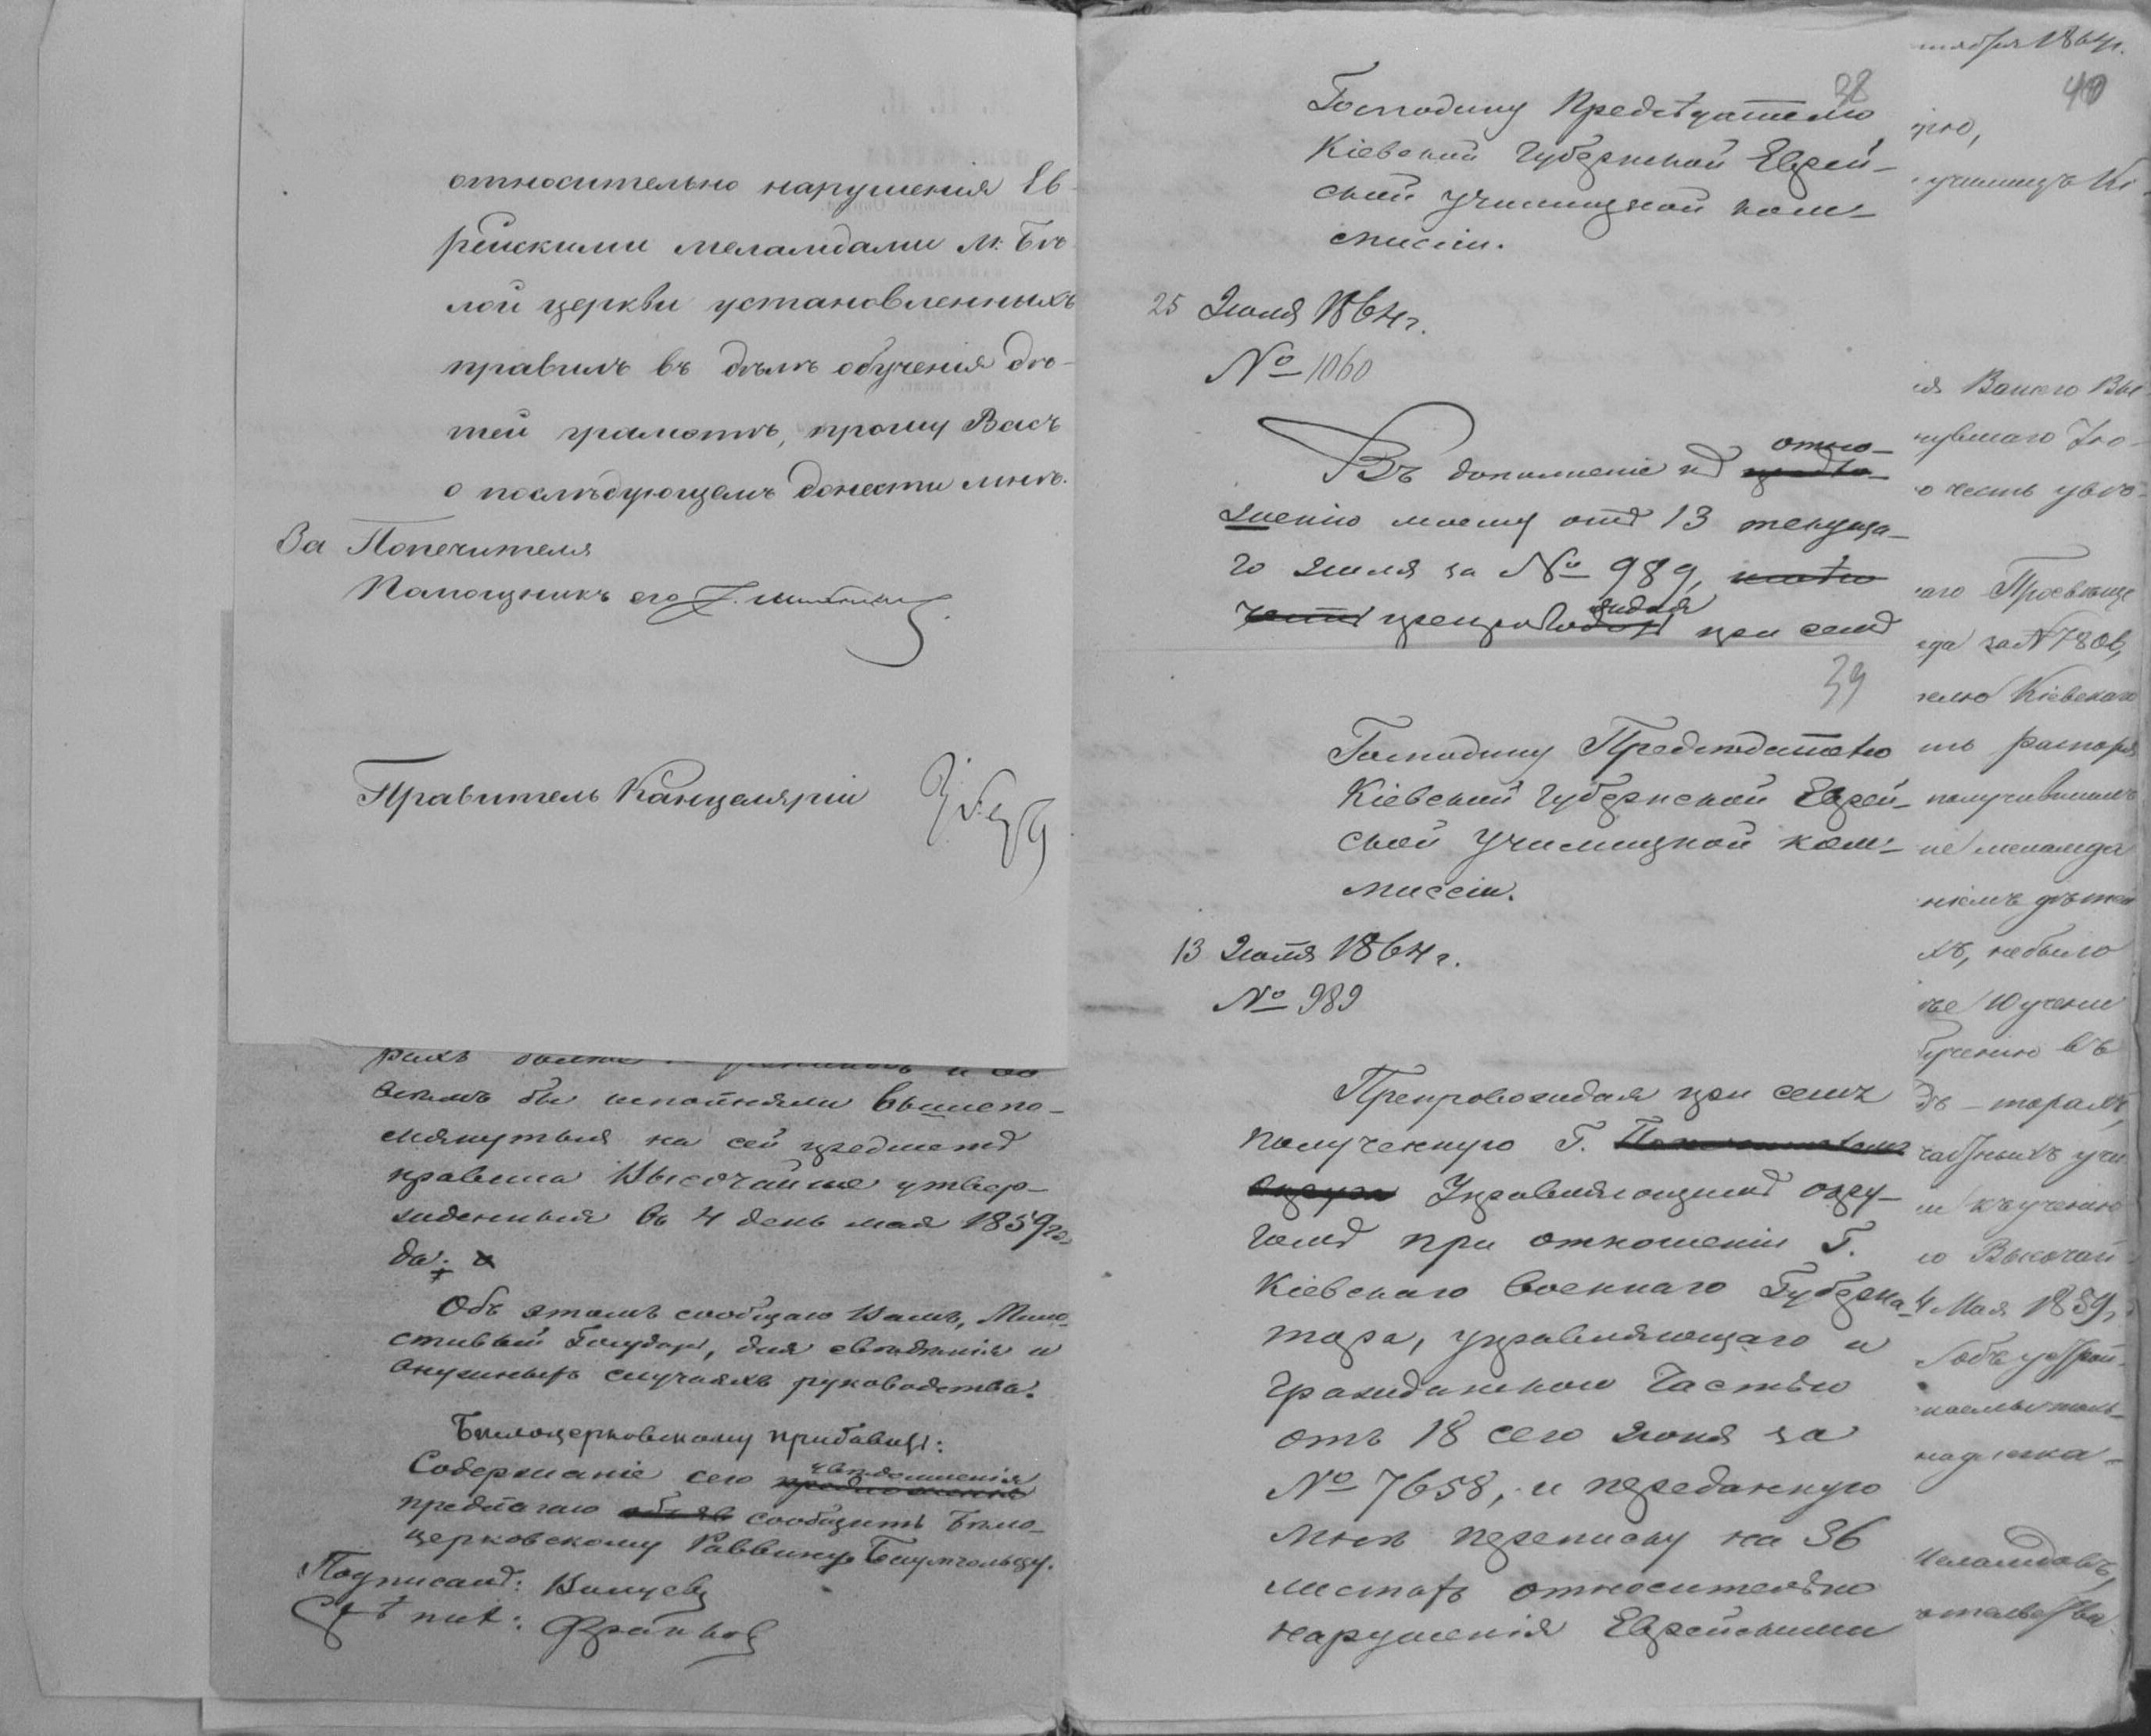 относительно нарушенія Ев-
рейскими меламдами м. Бѣ-
лой церкви установленныхъ
правилъ въ дѣлѣ обученія дѣ-
тей грамотѣ, прошу Васъ
о послѣдующемъ донести мнѣ.
За Попечителя
Помощникъ его
Правитель Канцеляріи
рыхъ
всемъ бы исполняли вышепо-
мянутыя на сей предметъ
правила Высочайше утвер-
жденныя въ 4 день мая 1859 го-
да.
Объ этомъ сообщаю Вамъ, Мило-
стивый Государь, для свѣдѣнія и
въ нужныхъ случаяхъ руководства.
Бѣлоцерковскому прибавить:
Содержаніе сего увѣдомленія
предлагаю сообщить Бѣло-
церковскому Раввину Баумгольцу.
Подписалъ:
38
Господину Предсѣдателю
Кіевской Губернской Еврей-
ской Училищной ком-
мисіи.
25 Іюля 1864 г.
№ 1060
отно-
Въ дополненіе къ
шенію моему отъ 13 текуща-
го Іюля за № 989,
препровождая при семъ
39
Господину Предсѣдателю
Кіевской Губернской Еврей-
ской Училищной ком-
миссіи.
13 Іюля 1864 г.
№ 989
Препровождая при семъ
полученную Г.
Управляющимъ окру-
гомъ при отношеніи Г.
Кіевскаго Военнаго Губерна-
тора, управляющаго и
гражданскою частью
отъ 18 сего Іюня за
№ 7658, и переданную
мнѣ переписку на 36
листахъ относительно
нарушенія Еврейскими
1864 г.
40
училищъ Кі-
ія Вашего Вы-
честь увѣ-
наго Просвѣще
года за № 7806,
телю Кіевскаго
ть распоря
получившимъ
не меламда
ніемъ дѣтей
хъ, небыло
ученію въ
торамъ,
частныхъ учи
и къ ученію
го Высочай
4 Мая 1859 г.
объ устрой-
надлежа-
меламдовъ,